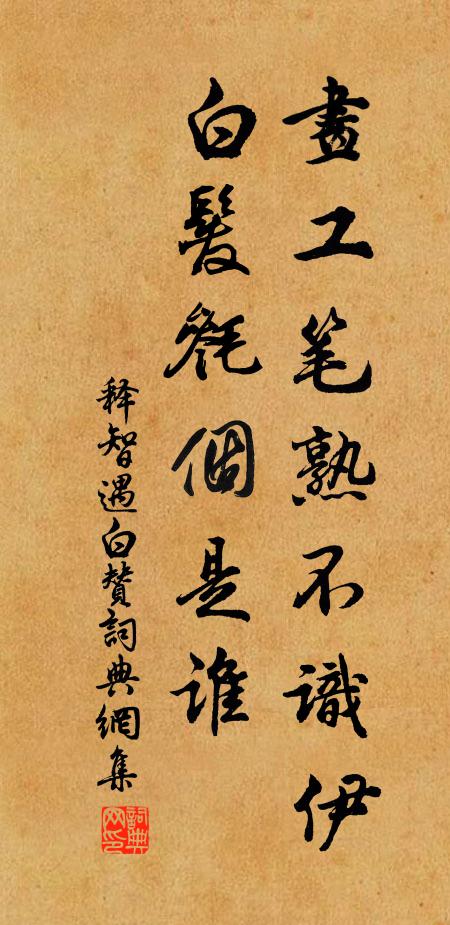 畫工笔熟不識伊
白髮毿個是誰
释智遇白贊詞典網集
詞典网印